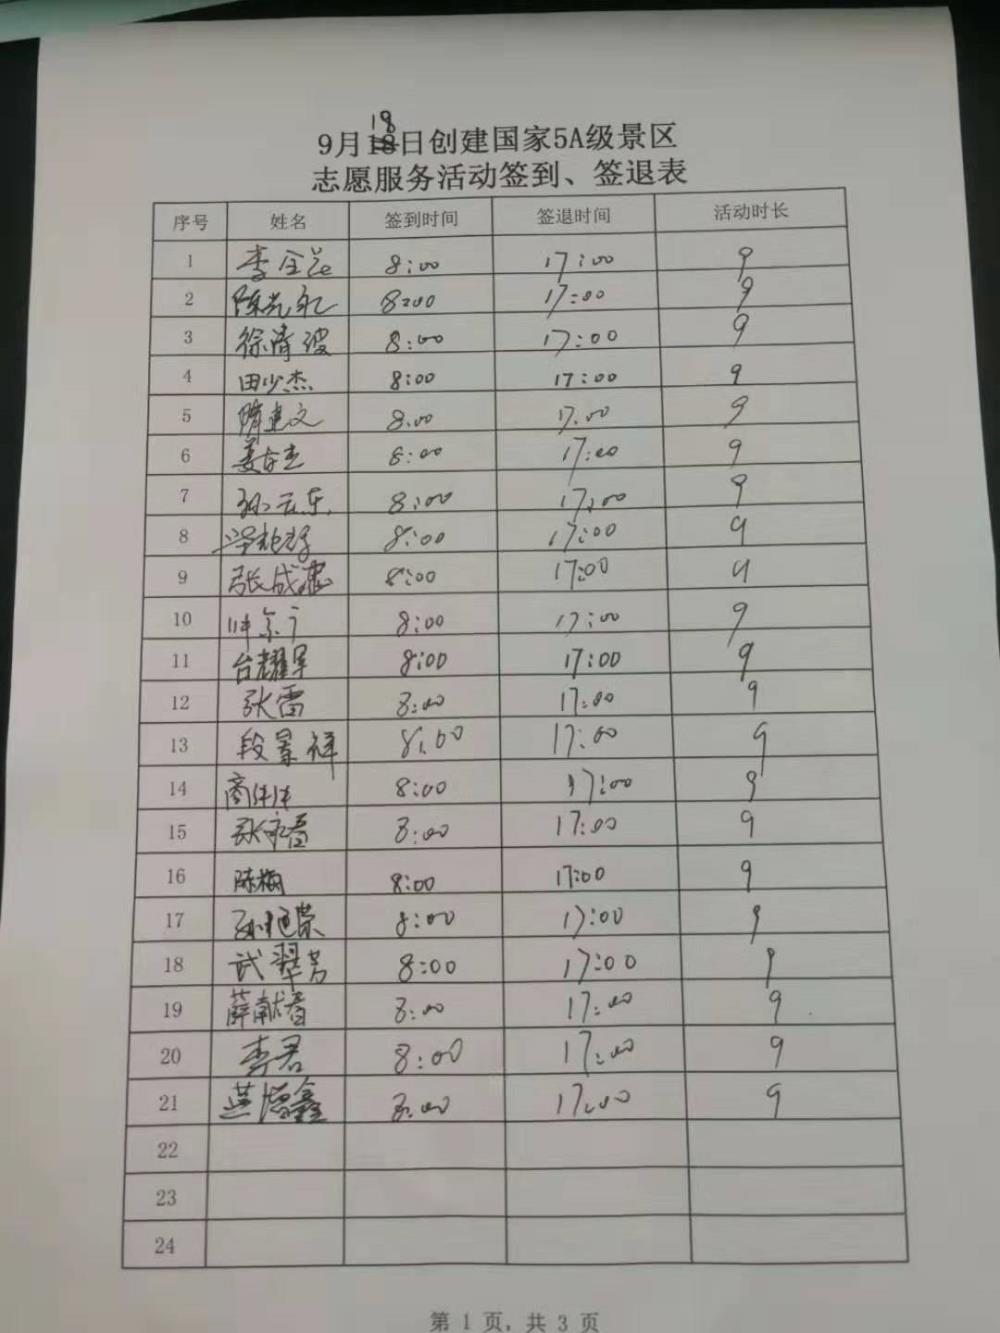 9月19日创建国家5A级景区
志愿服务活动签到、签退表
序号 姓名 签到时间 签退时间 活动时长
1 李全 8:00 17:00 9
2 陈 8:00 17:00 9
3 徐清波 8:00 17:00 9
4 田少杰 8:00 17:00 9
5 隋建文 8:00 17:00 9
6 姜存 8:00 17:00 9
7 孙云东 8:00 17:00 9
8 8:00 17:00 9
9 张成 8:00 17:00 9
10 帅宗 8:00 17:00 9
11 台耀军 8:00 17:00 9
12 张雷 8:00 17:00 9
13 段景祥 8:00 17:00 9
14 商 8:00 17:00 9
15 张 8:00 17:00 9
16 陈梅 8:00 17:00 9
17 孙 8:00 17:00 9
18 武翠芳 8:00 17:00 9
19 薛献春 8:00 17:00 9
20 李君 8:00 17:00 9
21 鑫 8:00 17:00 9
22
23
24
第 1 页，共 3 页